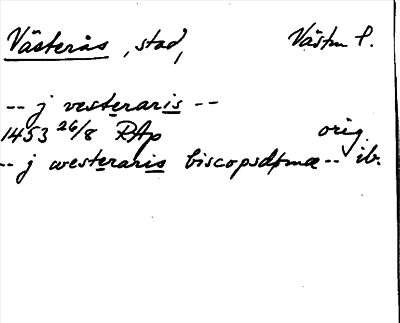 Västerås, stad, Västm l.
-- j vesteraris --
1453 26/8 RAp orig.
-- j westeraris biscopsdømæ -- ib.